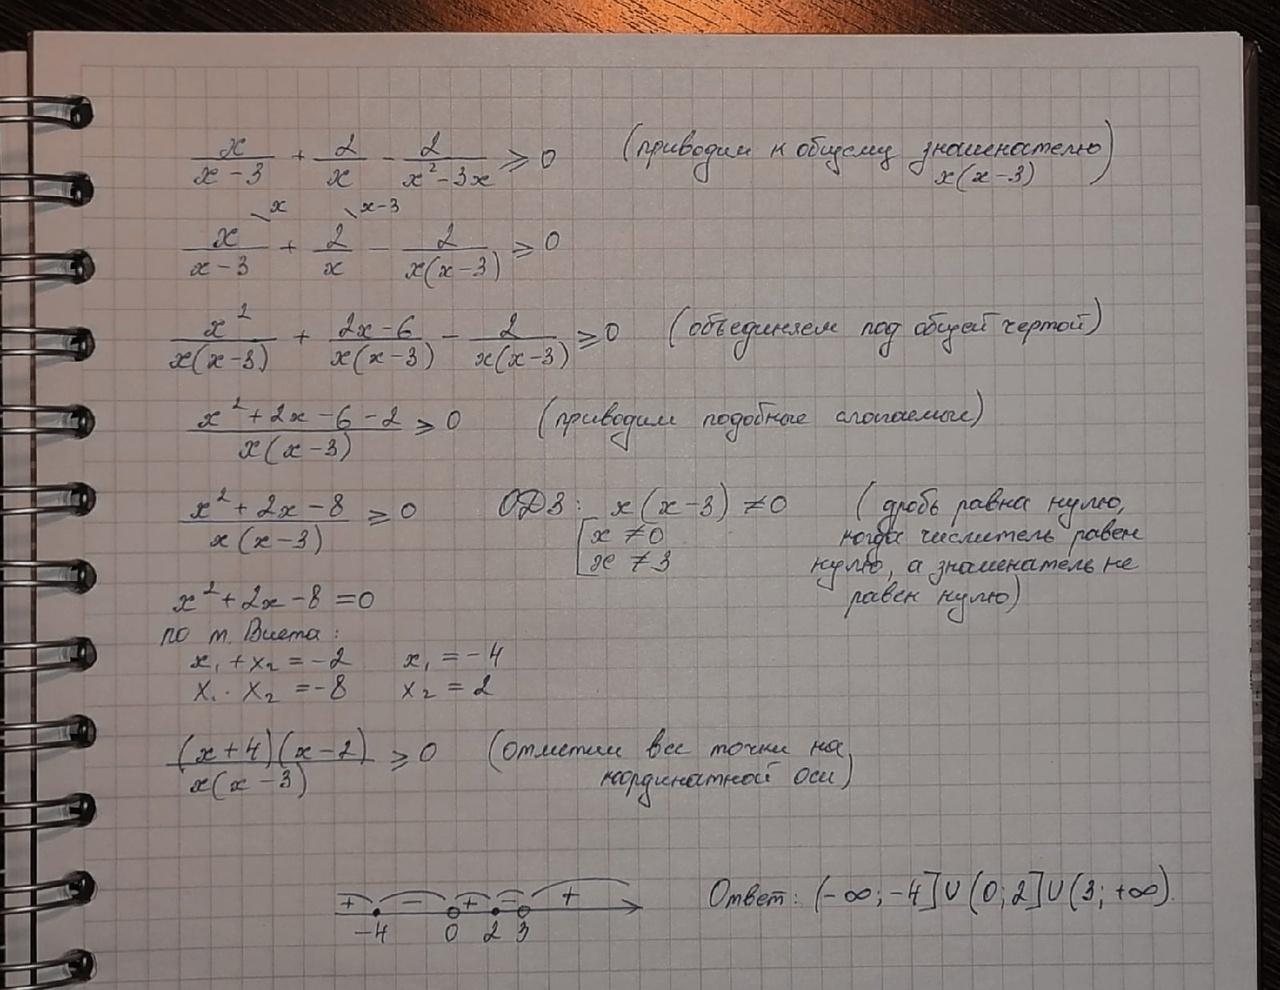 x/(x-3) + 2/x - 2/(x²-3x) ⩾ 0 (приводим к общему знаменателю x(x-3))
x/(x-3) \x + 2/x \x-3 - 2/(x(x-3)) ⩾ 0
x²/(x(x-3)) + (2x-6)/(x(x-3)) - 2/(x(x-3)) ⩾ 0 (объединяем под общей чертой)
(x²+2x-6-2)/(x(x-3)) ⩾ 0 (приводим подобные слагаемые)
(x²+2x-8)/(x(x-3)) ⩾ 0 ОДЗ: x(x-3) ≠ 0 (дробь равна нулю,
[x ≠ 0 когда числитель равен
x ≠ 3 нулю, а знаменатель не
x²+2x-8=0 равен нулю)
по т. Виета:
x₁+x₂=-2 x₁=-4
x₁·x₂=-8 x₂=2
((x+4)(x-2))/(x(x-3)) ⩾ 0 (отметим все точки на
координатной оси)
+ - + - + Ответ: (-∞;-4]∪(0;2]∪(3;+∞).
-4 0 2 3